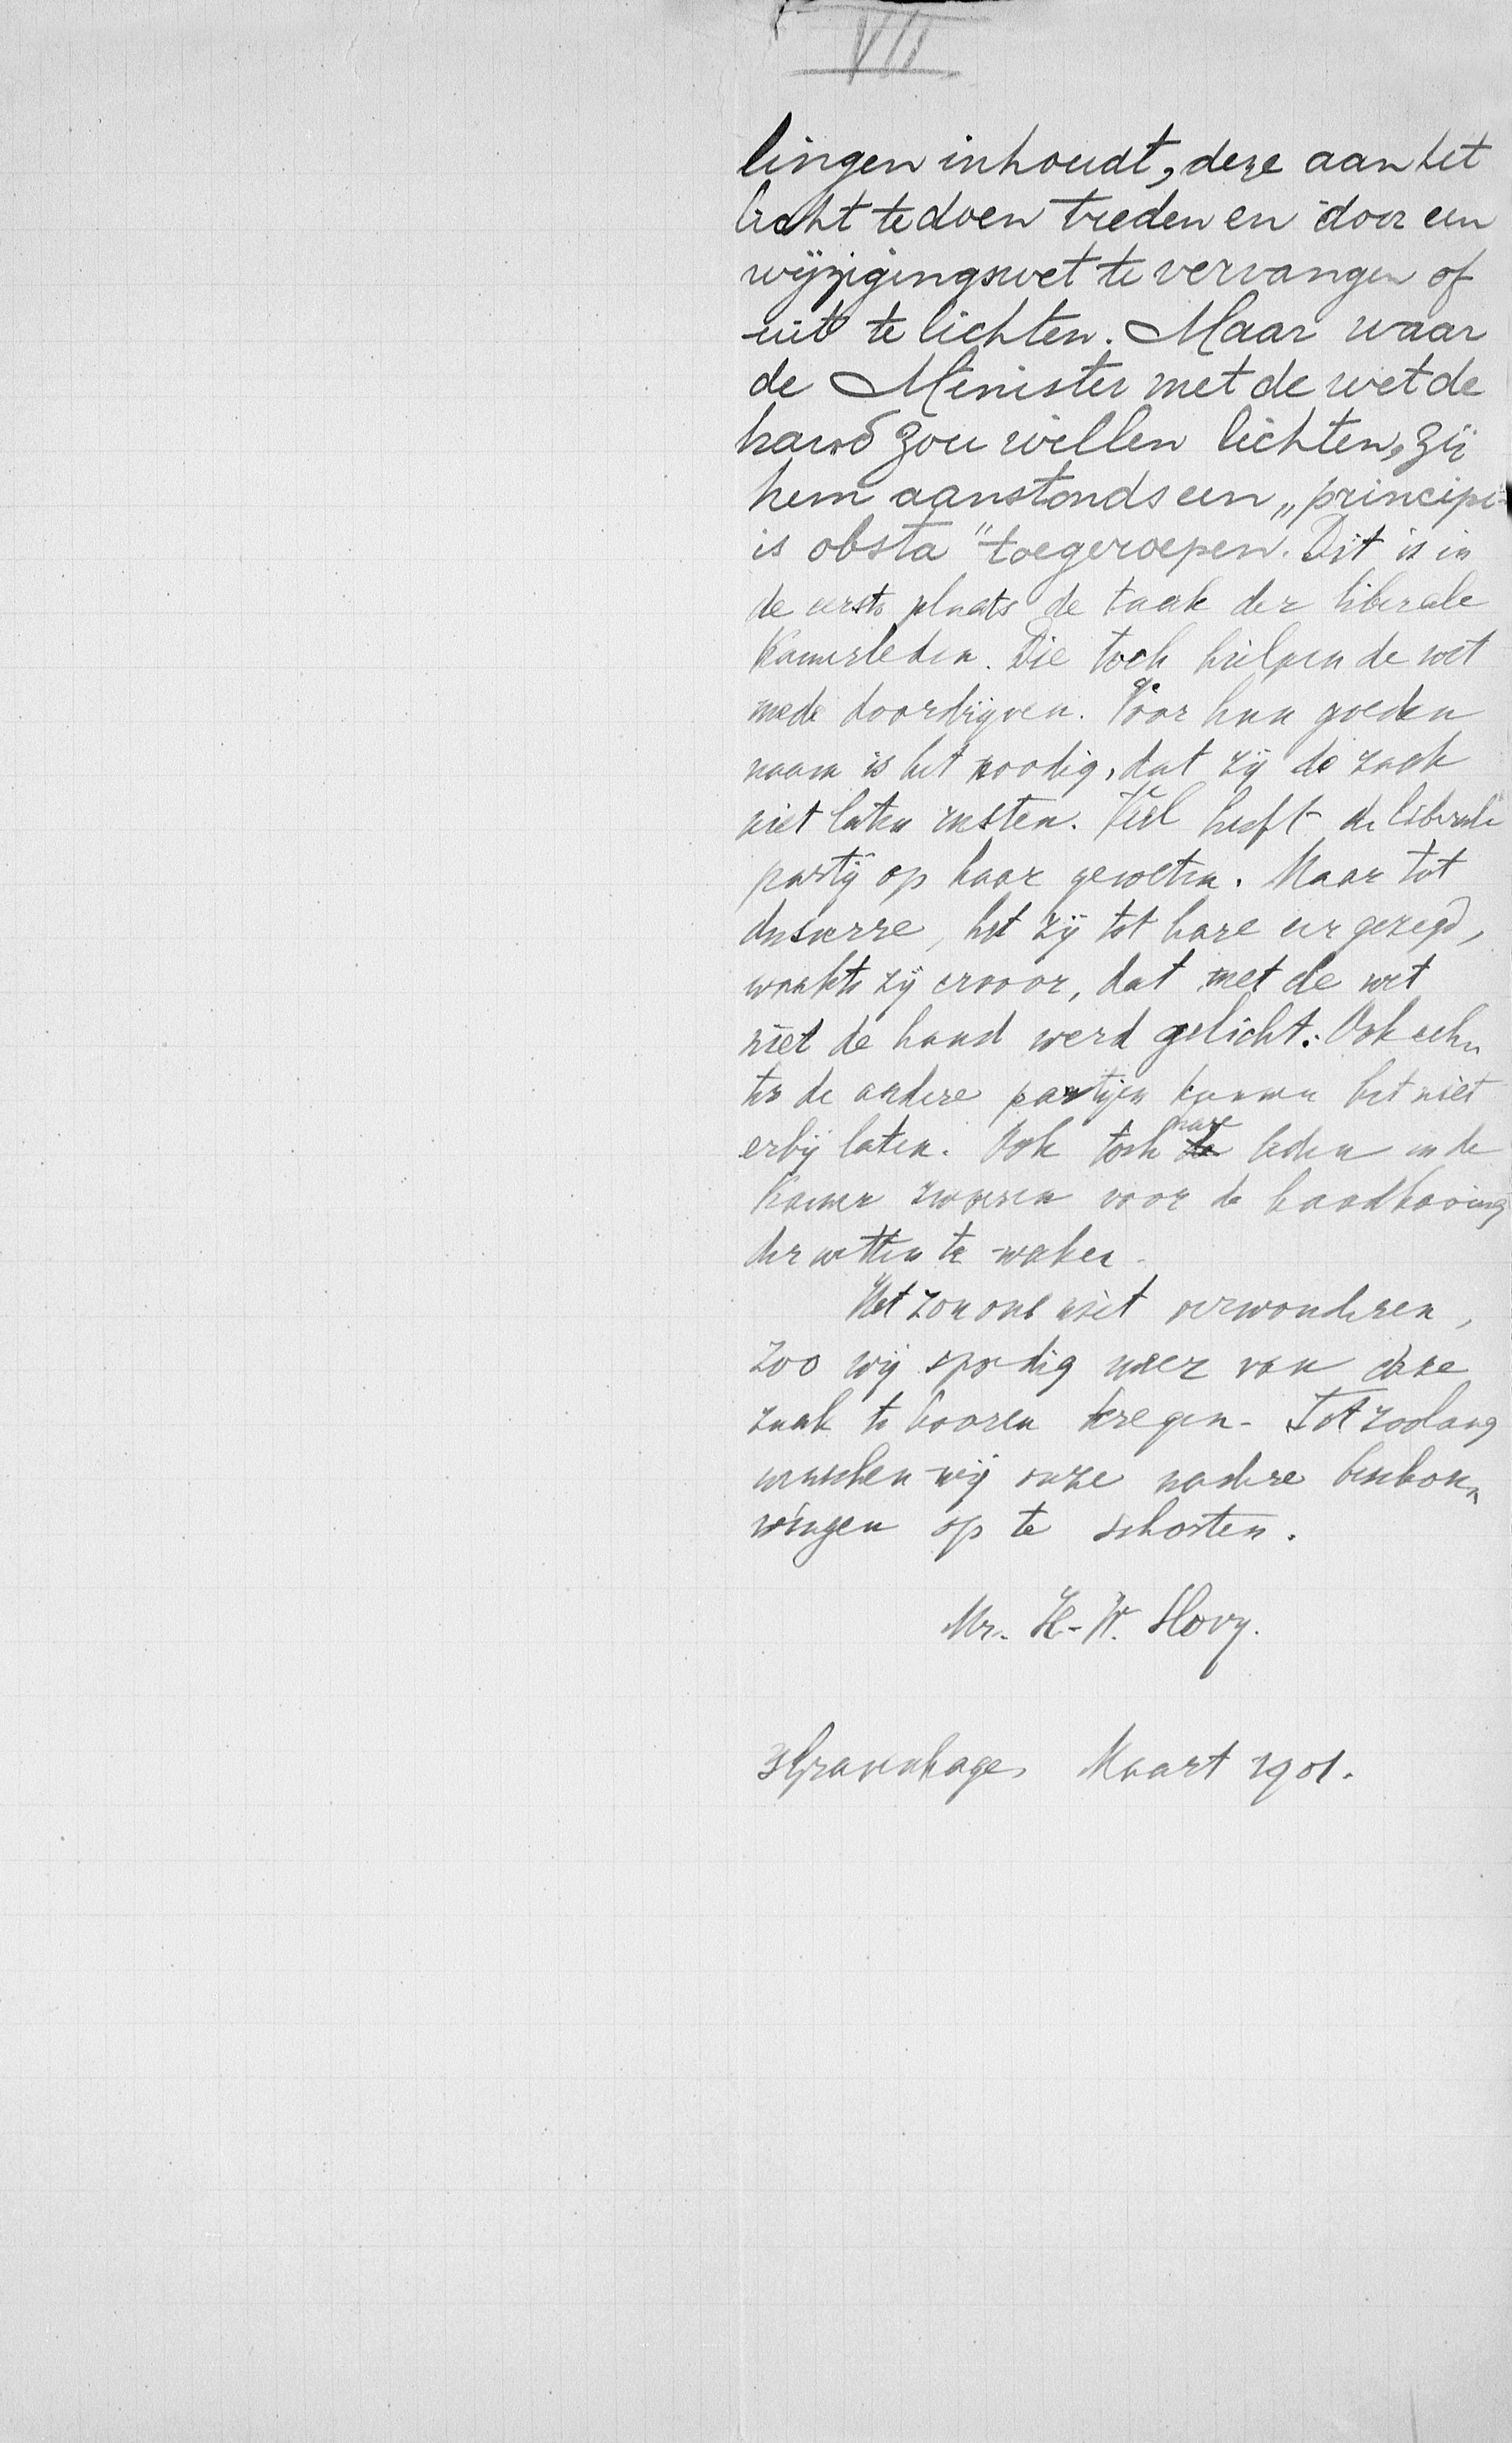 VII
lingen inhoudt, deze aan het
licht te doen treden en door een
wijzigingswet te vervangen of
uit te lichten. Maar waar
de Minister met de wet de
hand zou willen lichten, zij
hem aanstonds een „principi=
is obsta" toegeroepen. Dit is in
de eerste plaats de taak der liberale
Kamerleden. Die toch hielpen de wet
mede doordrijven. Voor hun goeden
naam is het noodig, dat zij de zaak
niet laten rusten. Veel heeft de liberale
partij op haar geweten. Maar tot
dusverre, het zij tot hare eer gezegd,
waakte zij ervoor, dat met de wet
niet de hand werd gelicht. Ook ech„
ter de andere partijen kunnen het niet
erbij laten. Ook toch hare leden in de
Kamer zwoeren voor de handhaving
der wetten te waken.
Het zou ons niet verwonderen,
zoo wij spoedig meer van deze
zaak te hooren kregen. Tot zoolang
wenschen wij onze nadere beschou„
wingen op te schorten.
Mr. H. W. Hovy.
sGravenhage, Maart 1901.